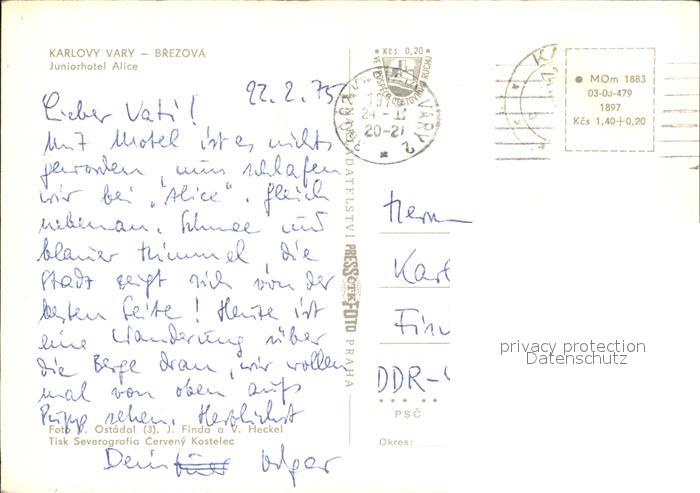 KARLOVY VARY – BŘEZOVÁ
Juniorhotel Alice
22.2.75
Lieber Vati!
Mit Motel ist es nichts
geworden, nun schlafen
wir bei "Alice". gleich
nebenan. Schnee und
blauer Himmel, die
Stadt zeigt sich von der
besten Seite! Heute ist
eine Wanderung über
die Berge dran, wir wollen
mal von oben aufs
Pupp sehen. Herzlichst
Dein
Foto V. Ostádal (3), J. Finda a V. Heckel
Tisk Severografia Červený Kostelec
PRESSFOTO PRAHA
Kčs 0,20
VARY 2
20-21
MOm 1883
03-03-479
1897
Kčs 1,40+0,20
Herrn
DDR-
PSČ
Okres:
privacy protection
Datenschutz